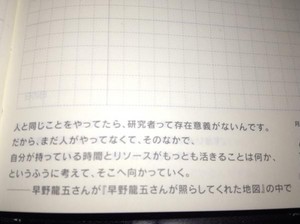 人と同じことをやってたら、研究者って存在意義がないんです。
だから、まだ人がやってなくて、そのなかで、
自分が持っている時間とリソースがもっとも活きることは何か、
というふうに考えて、そこへ向かっていく。
——早野龍五さんが『早野龍五さんが照らしてくれた地図』の中で